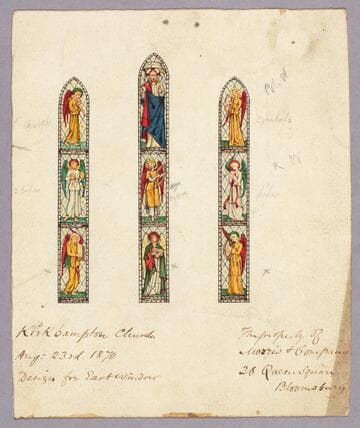 cymbals
Kirkbampton Church.
Aug: 23rd 1870
Design for East window
The property of
Morris & Company
26 Queen Square
Bloomsbury